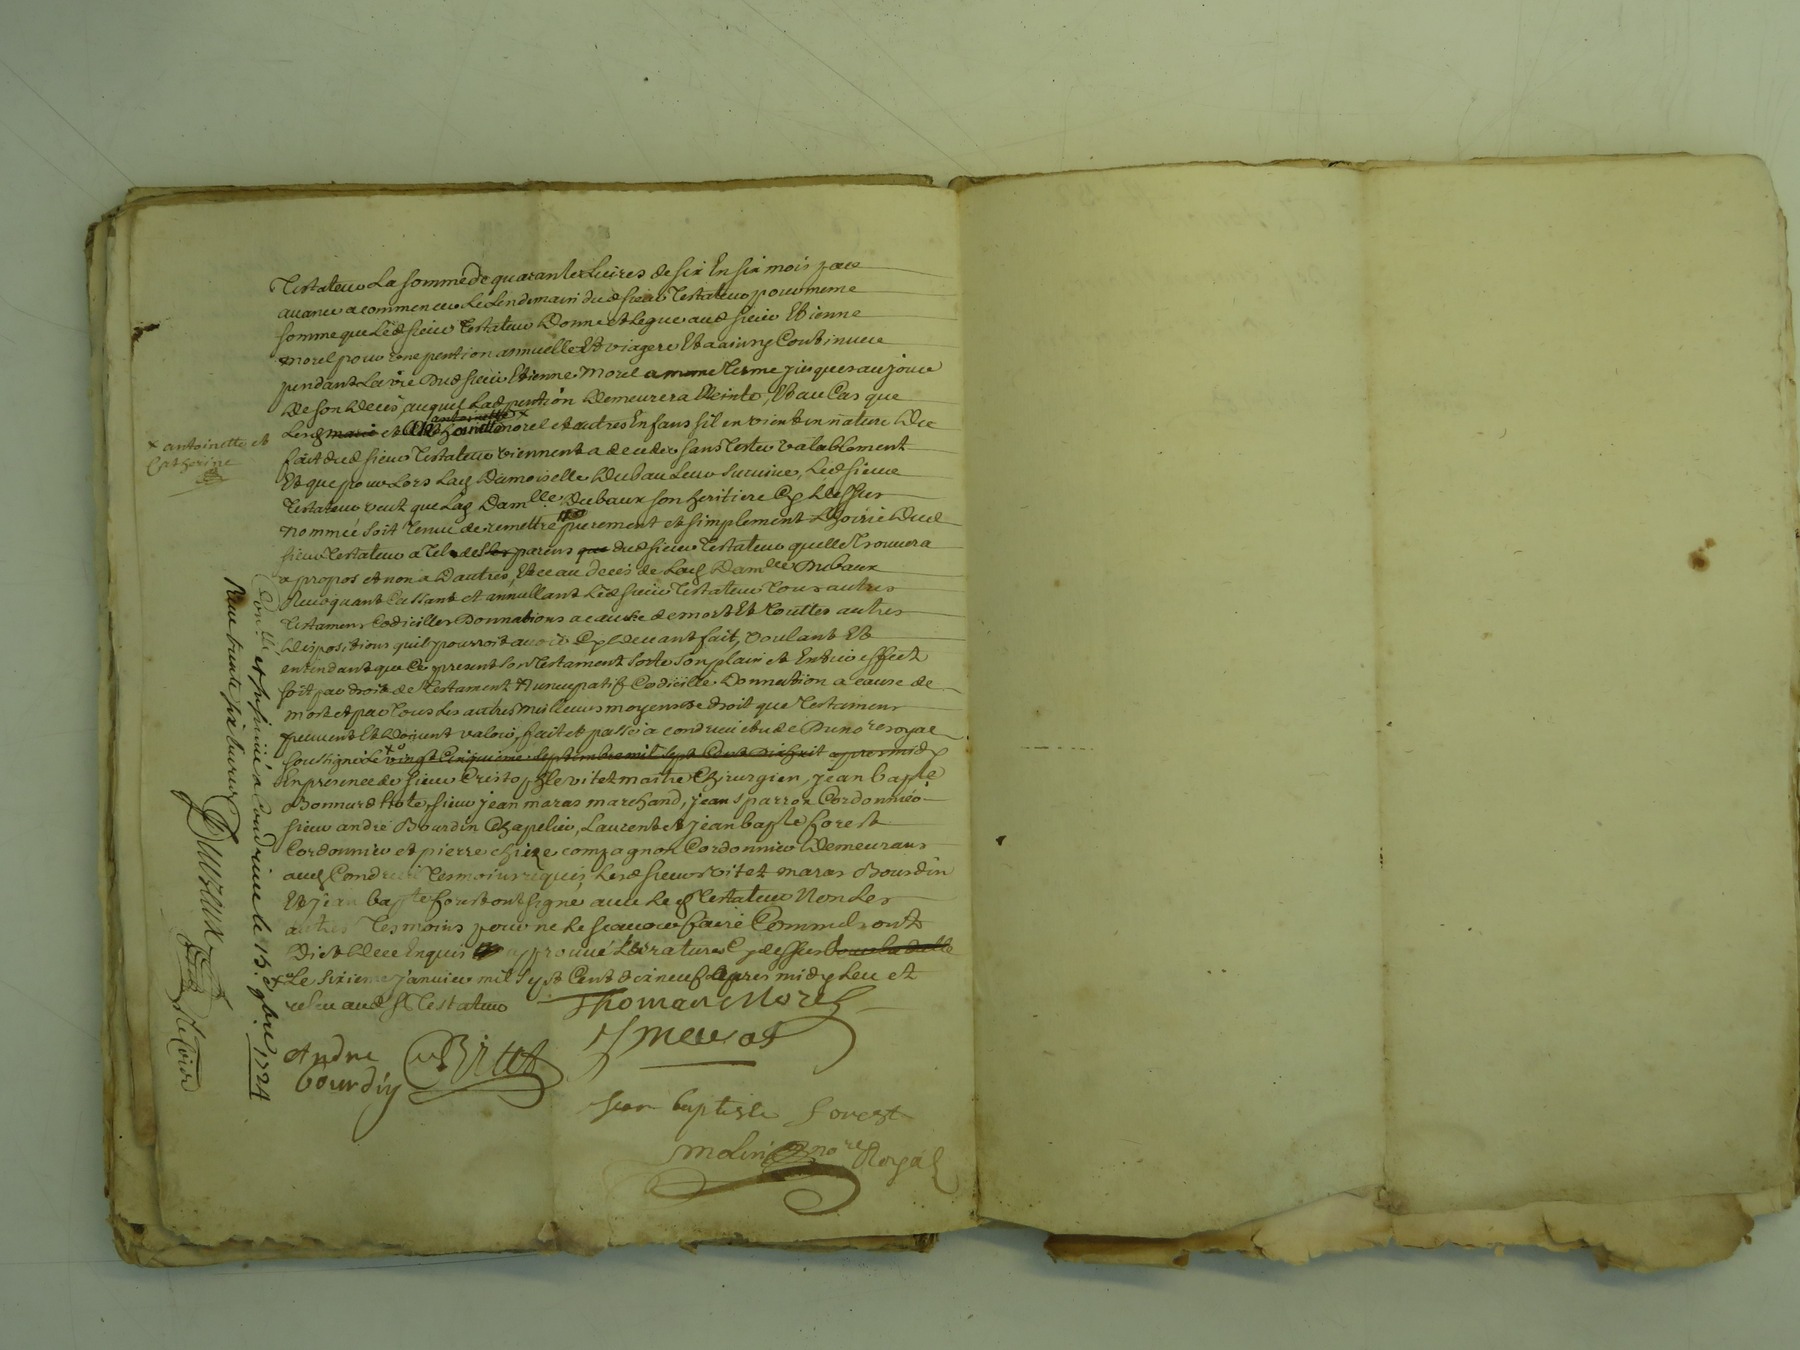 Testateur La somme de quarante Livres de six En six mois par
avance a commencer Le Lendemain dud sieur Testateur pour meme
somme que Led sieur Testateur Donne et Legue aud sieur Etienne
morel pour une pention annuelle Et viagere Et a ainsy Continuer
pendant La vie Dud sieur Etienne Morel a meme Terme jusques au jour
De son Deces, auquel Lad pention Demeurera Eteinte, Et au Cas que
antoinette x
Lesd marie et morel et autres Enfans sil en vient en nature De
x antoinette et
Catherine
fait dud sieur Testateur viennent a deceder sans Tester valablement
Et que pour Lors Lad Damoiselle Dubaux Leur survive, Led sieur
Testateur veut que Lad Damlle Dubaux son heritiere Cy Dessus
nommée soit Tenue de remettre purement et simplement Lhoirie Dud
sieur Testateur a Tel des parens que dud sieur Testateur quelle Trouvera
a propos et non a Dautres, Et ce au deces de Lad Damlle Dubaux
Revoquant Cassant et annullant Led sieur Testateur Tous autres
Testamens Codicilles Donnations a cause de mort Et Toutes autres
Dispositions quil pourroit avoir Cy Devant fait, voulant Et
entendant que Ce present son Testament sorte son plain et Entier effect
soit par droit de Testament Nuncupatif Codicille Donnation a cause de
mort et par Tous Les autres meilleurs moyens de droit que Testamens
peuvent Et Doivent valoir, fait et passé a condrieu etude Du nore royal
soussigné Le vingt Cinquieme septembre mil sept Cent Dixhuit apres midy
En presence de sieur Cristophle vitet maitre Chirurgien, jean baptte
Bonnard hote, sieur jean maras marchand, jean sparron Cordonnier
sieur andré Bourdin Chapelier, Laurent et jean baptte forest
Cordonnier et pierre chize compagnon Cordonnier Demeurans
aud Condrieu Temoins requis, Lesd sieurs vitet maras Bourdin
Et jean baptte forest ont signé avec Led Testateur Non Les
autres Tesmoins pour ne Le scavoir faire Comme ils ont
Dit De ce Enquis approuvé Literature Cy dessus
Le sixieme janvier mil sept Cent dixneuf apres midy Leu et
releu aud sr Testateur
Thomas Morel
Andre
bourdin
Vitet
jean baptiste forest
molin nore Royal
Conllé et insinué a Condrieu le 15e 9bre 1724
Reçu trente six livres